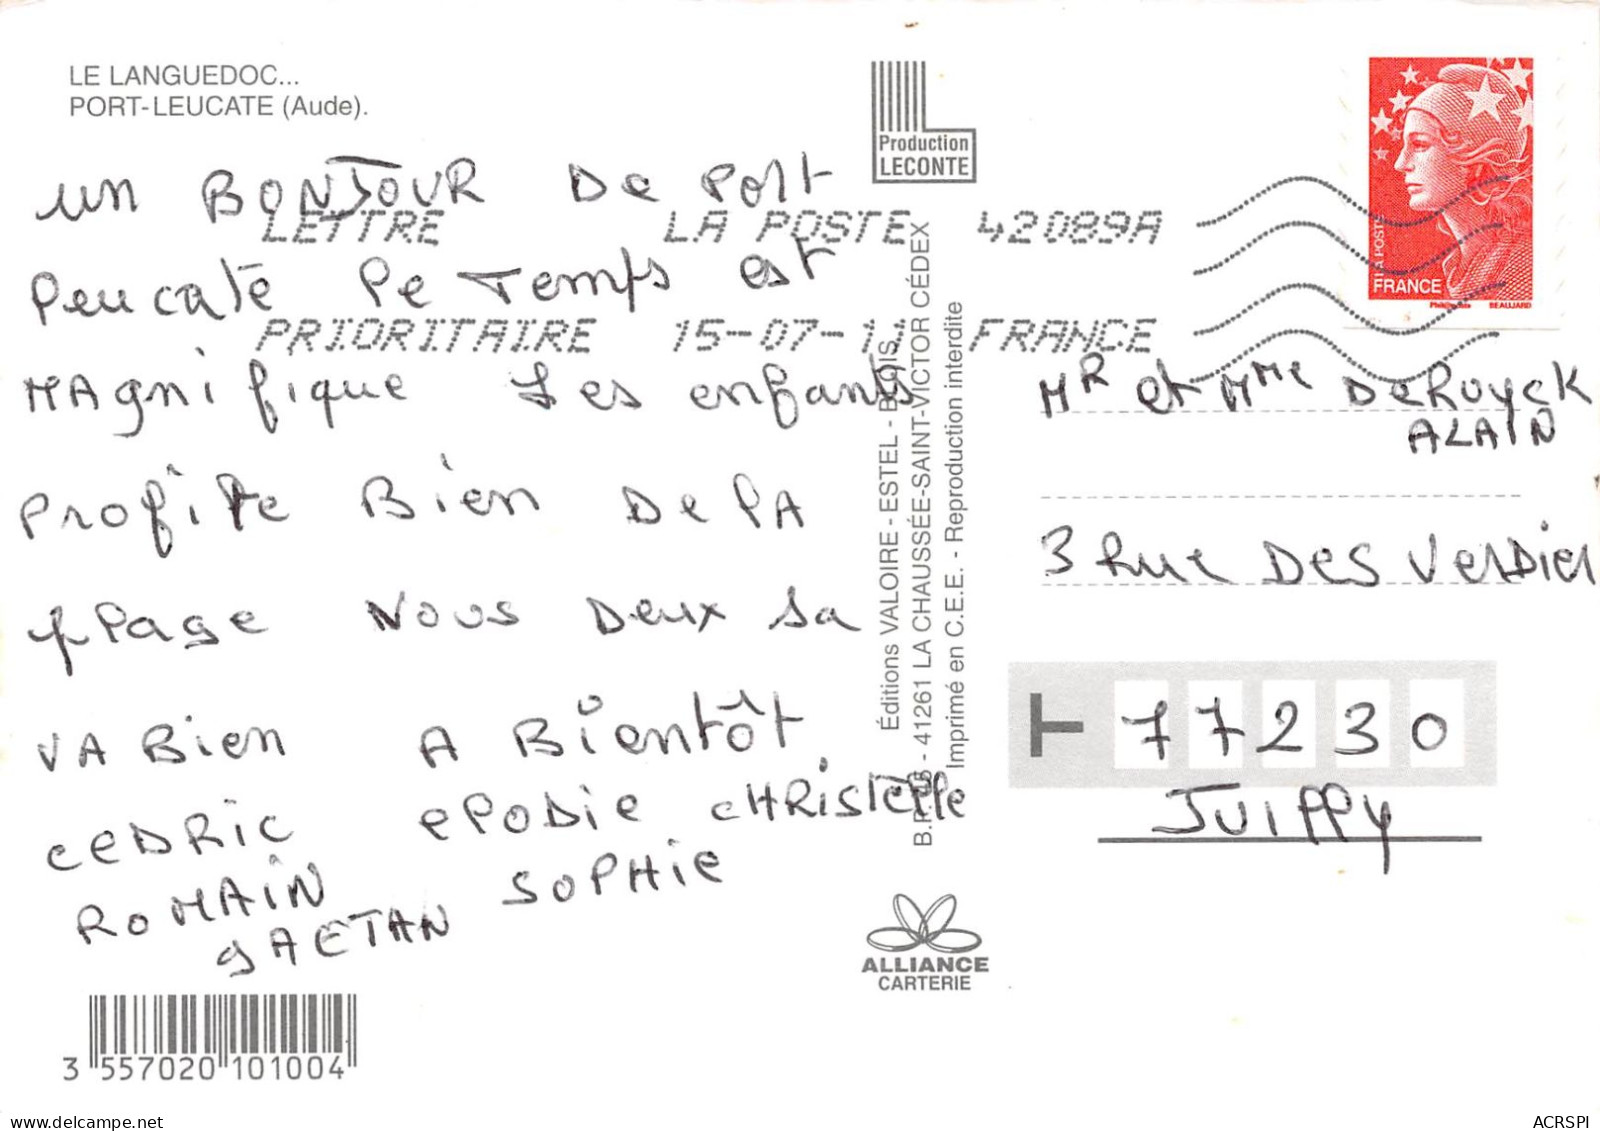 LE LANGUEDOC...
PORT-LEUCATE (Aude).
Production
LECONTE
LA POSTE
FRANCE
BEAUJARD
LETTRE LA POSTE 42089A
PRIORITAIRE 15-07-11 FRANCE
un BONJOUR De Port
leucate le Temps est
MAgnifique Les enfants
Profite Bien De lA
plage Nous Deux sa
VA Bien A Bientôt
CEDRIC elodie CHRIStelle
ROMAIN SOPHIE
gAETAN
Éditions VALOIRE - ESTEL - BLOIS
41261 LA CHAUSSÉE-SAINT-VICTOR CÉDEX
Imprimé en C.E.E. - Reproduction interdite
Mr et Mme DeRuyck
ALAIN
3 Rue Des Verdier
77230
Juilly
ALLIANCE
CARTERIE
3 557020 101004
ACRSPI